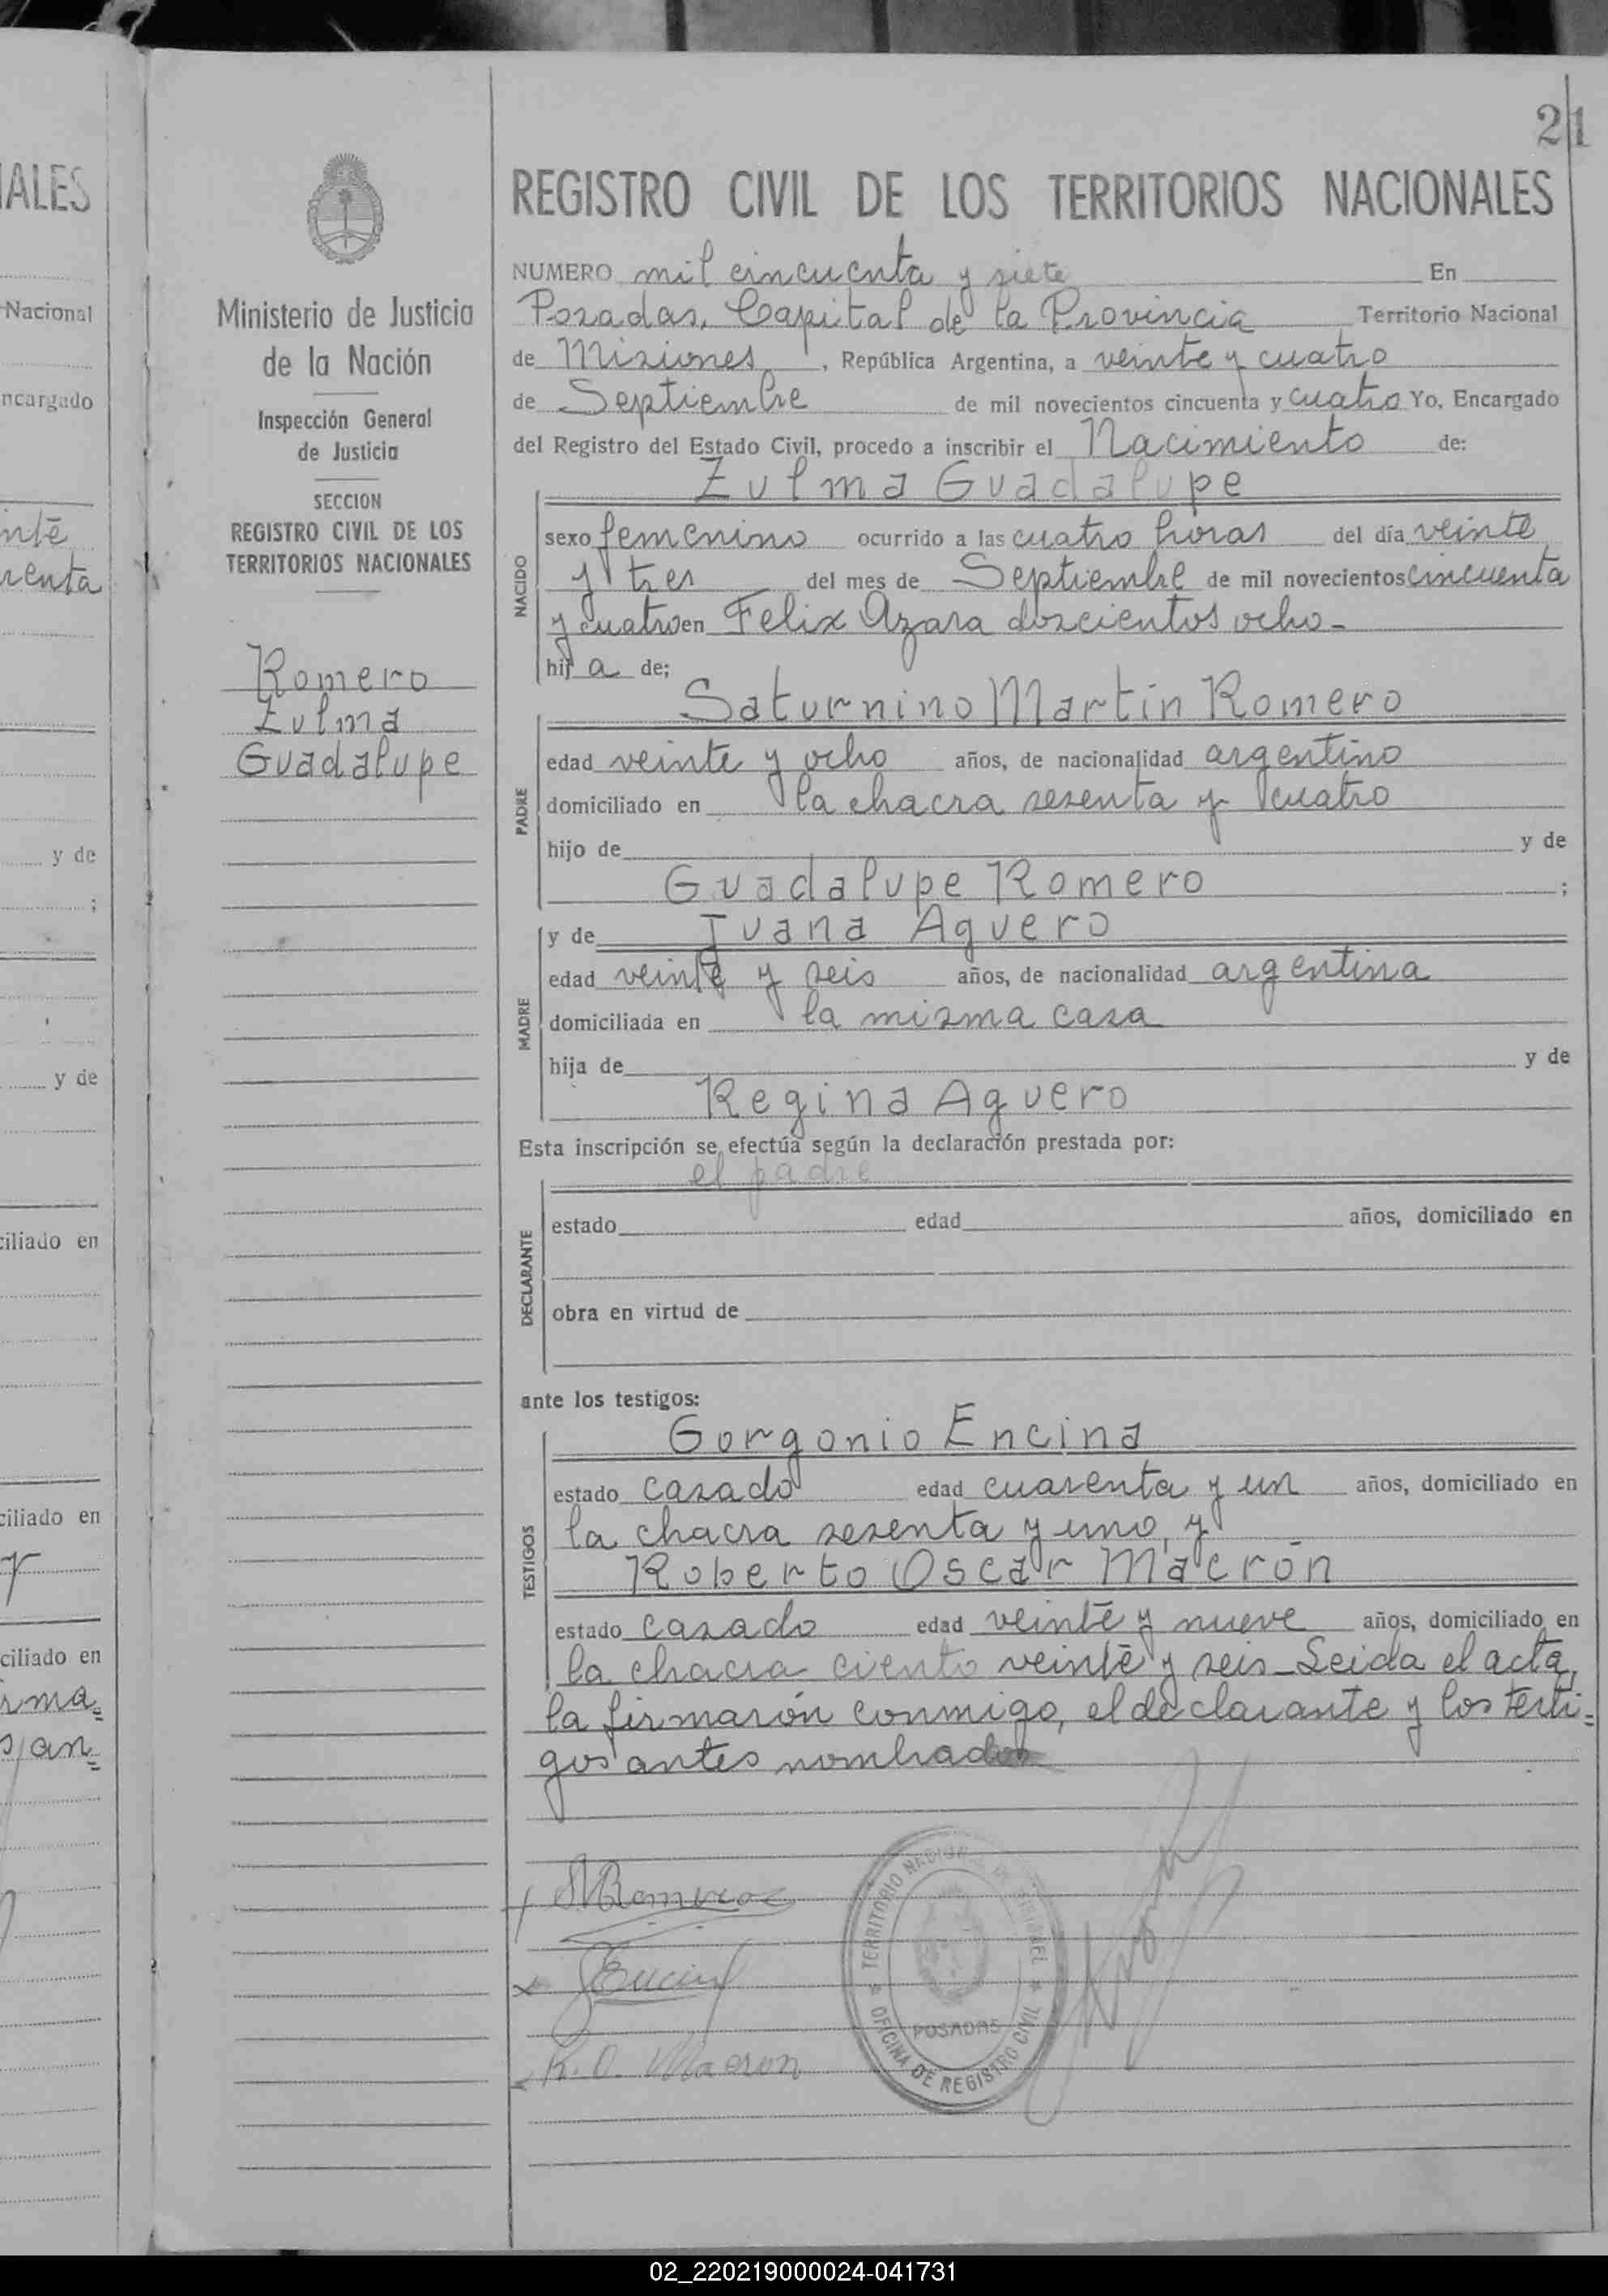 21
REGISTRO CIVIL DE LOS TERRITORIOS NACIONALES
Ministerio de Justicia
de la Nación
Inspección General
de Justicia
SECCION
REGISTRO CIVIL DE LOS
TERRITORIOS NACIONALES
Romero
Zulma
Guadalupe
NUMERO mil cincuenta y siete En
Posadas, Capital de la Provincia Territorio Nacional
de Misiones, República Argentina, a veinte y cuatro
de Septiembre de mil novecientos cincuenta y cuatro Yo, Encargado
del Registro del Estado Civil, procedo a inscribir el Nacimiento de:
Zulma Guadalupe
NACIDO
sexo femenino ocurrido a las cuatro horas del día veinte
y tres del mes de Septiembre de mil novecientos cincuenta
y cuatro en Felix Azara doscientos ocho-
hij a de;
Saturnino Martín Romero
PADRE
edad veinte y ocho años, de nacionalidad argentino
domiciliado en la chacra sesenta y cuatro
hijo de y de
Guadalupe Romero ;
MADRE
y de Juana Aguero
edad veinte y seis años, de nacionalidad argentina
domiciliada en la misma casa
hija de y de
Regina Aguero
Esta inscripción se efectúa según la declaración prestada por:
el padre
DECLARANTE
estado edad años, domiciliado en
obra en virtud de
ante los testigos:
Gorgonio Encina
TESTIGOS
estado casado edad cuarenta y un años, domiciliado en
la chacra sesenta y uno, y
Roberto Oscar Macrón
estado casado edad veinte y nueve años, domiciliado en
la chacra ciento veinte y seis_Leida el acta,
la firmarón conmigo, el declarante y los testi=
gos antes nombrados
SMRomero
GEncina
R. O. Macron
TERRITORIO NACIONAL DE MISIONES
POSADAS
OFICINA DE REGISTRO CIVIL
ALES
Nacional
ncargado
nte
renta
y de
;
y de
ciliado en
ciliado en
y
ciliado en
irma=
an=
02_220219000024-041731